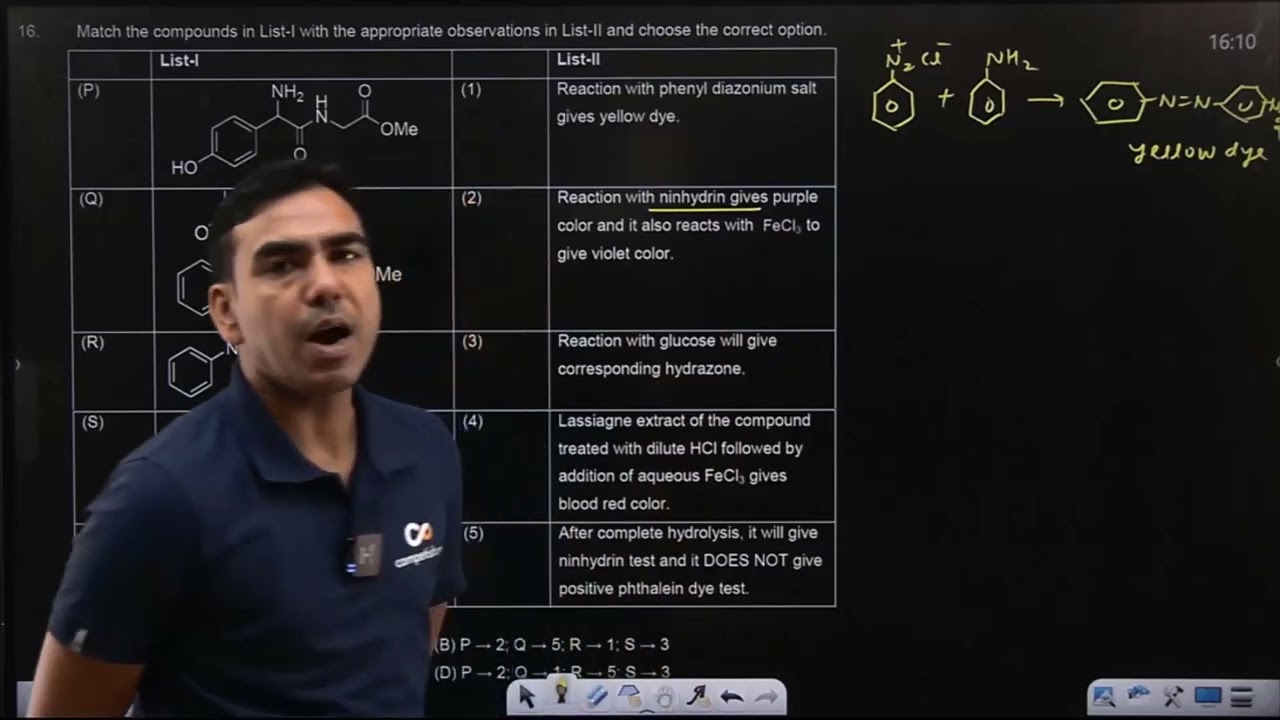 16. Match the compounds in List-I with the appropriate observations in List-II and choose the correct option.
16:10
List-I
List-II
(P)
NH2
H
N
O
OMe
O
HO
(1)
Reaction with phenyl diazonium salt
gives yellow dye.
(Q)
O
Me
(2)
Reaction with ninhydrin gives purple
color and it also reacts with FeCl3 to
give violet color.
(R)
N
(3)
Reaction with glucose will give
corresponding hydrazone.
(S)
(4)
Lassiagne extract of the compound
treated with dilute HCl followed by
addition of aqueous FeCl3 gives
blood red color.
(5)
After complete hydrolysis, it will give
ninhydrin test and it DOES NOT give
positive phthalein dye test.
(B) P → 2; Q → 5; R → 1; S → 3
(D) P → 2; Q → 1; R → 5; S → 3
N2+ Cl- + NH2 → N=N
yellow dye
H